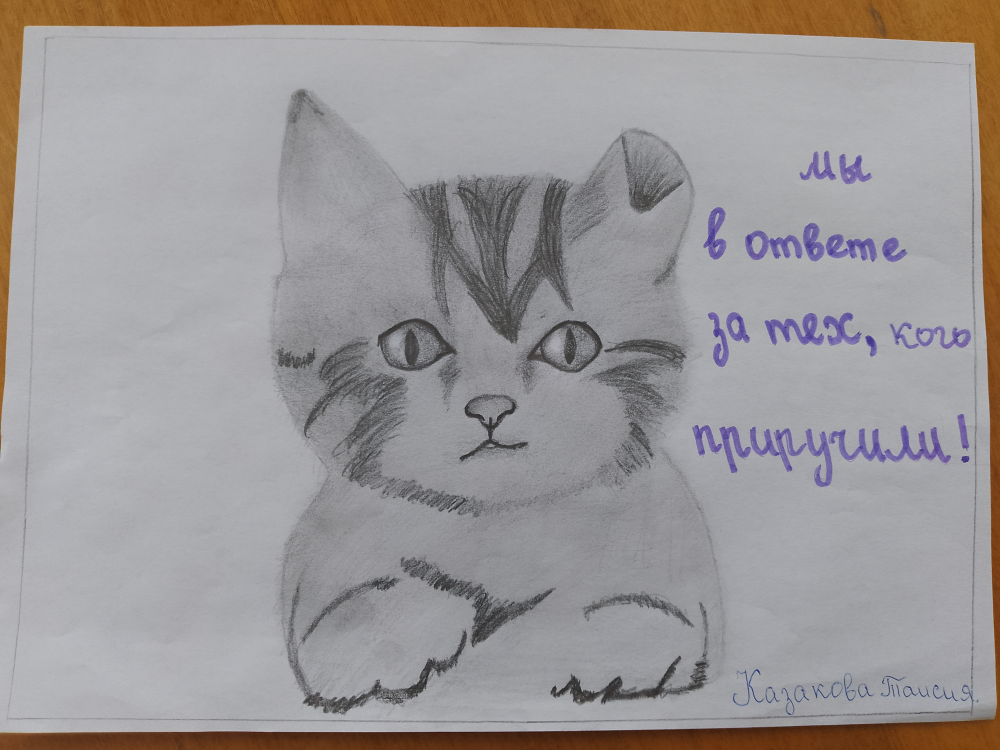 мы
в ответе
за тех, кого
приручили!
Казакова Таисия